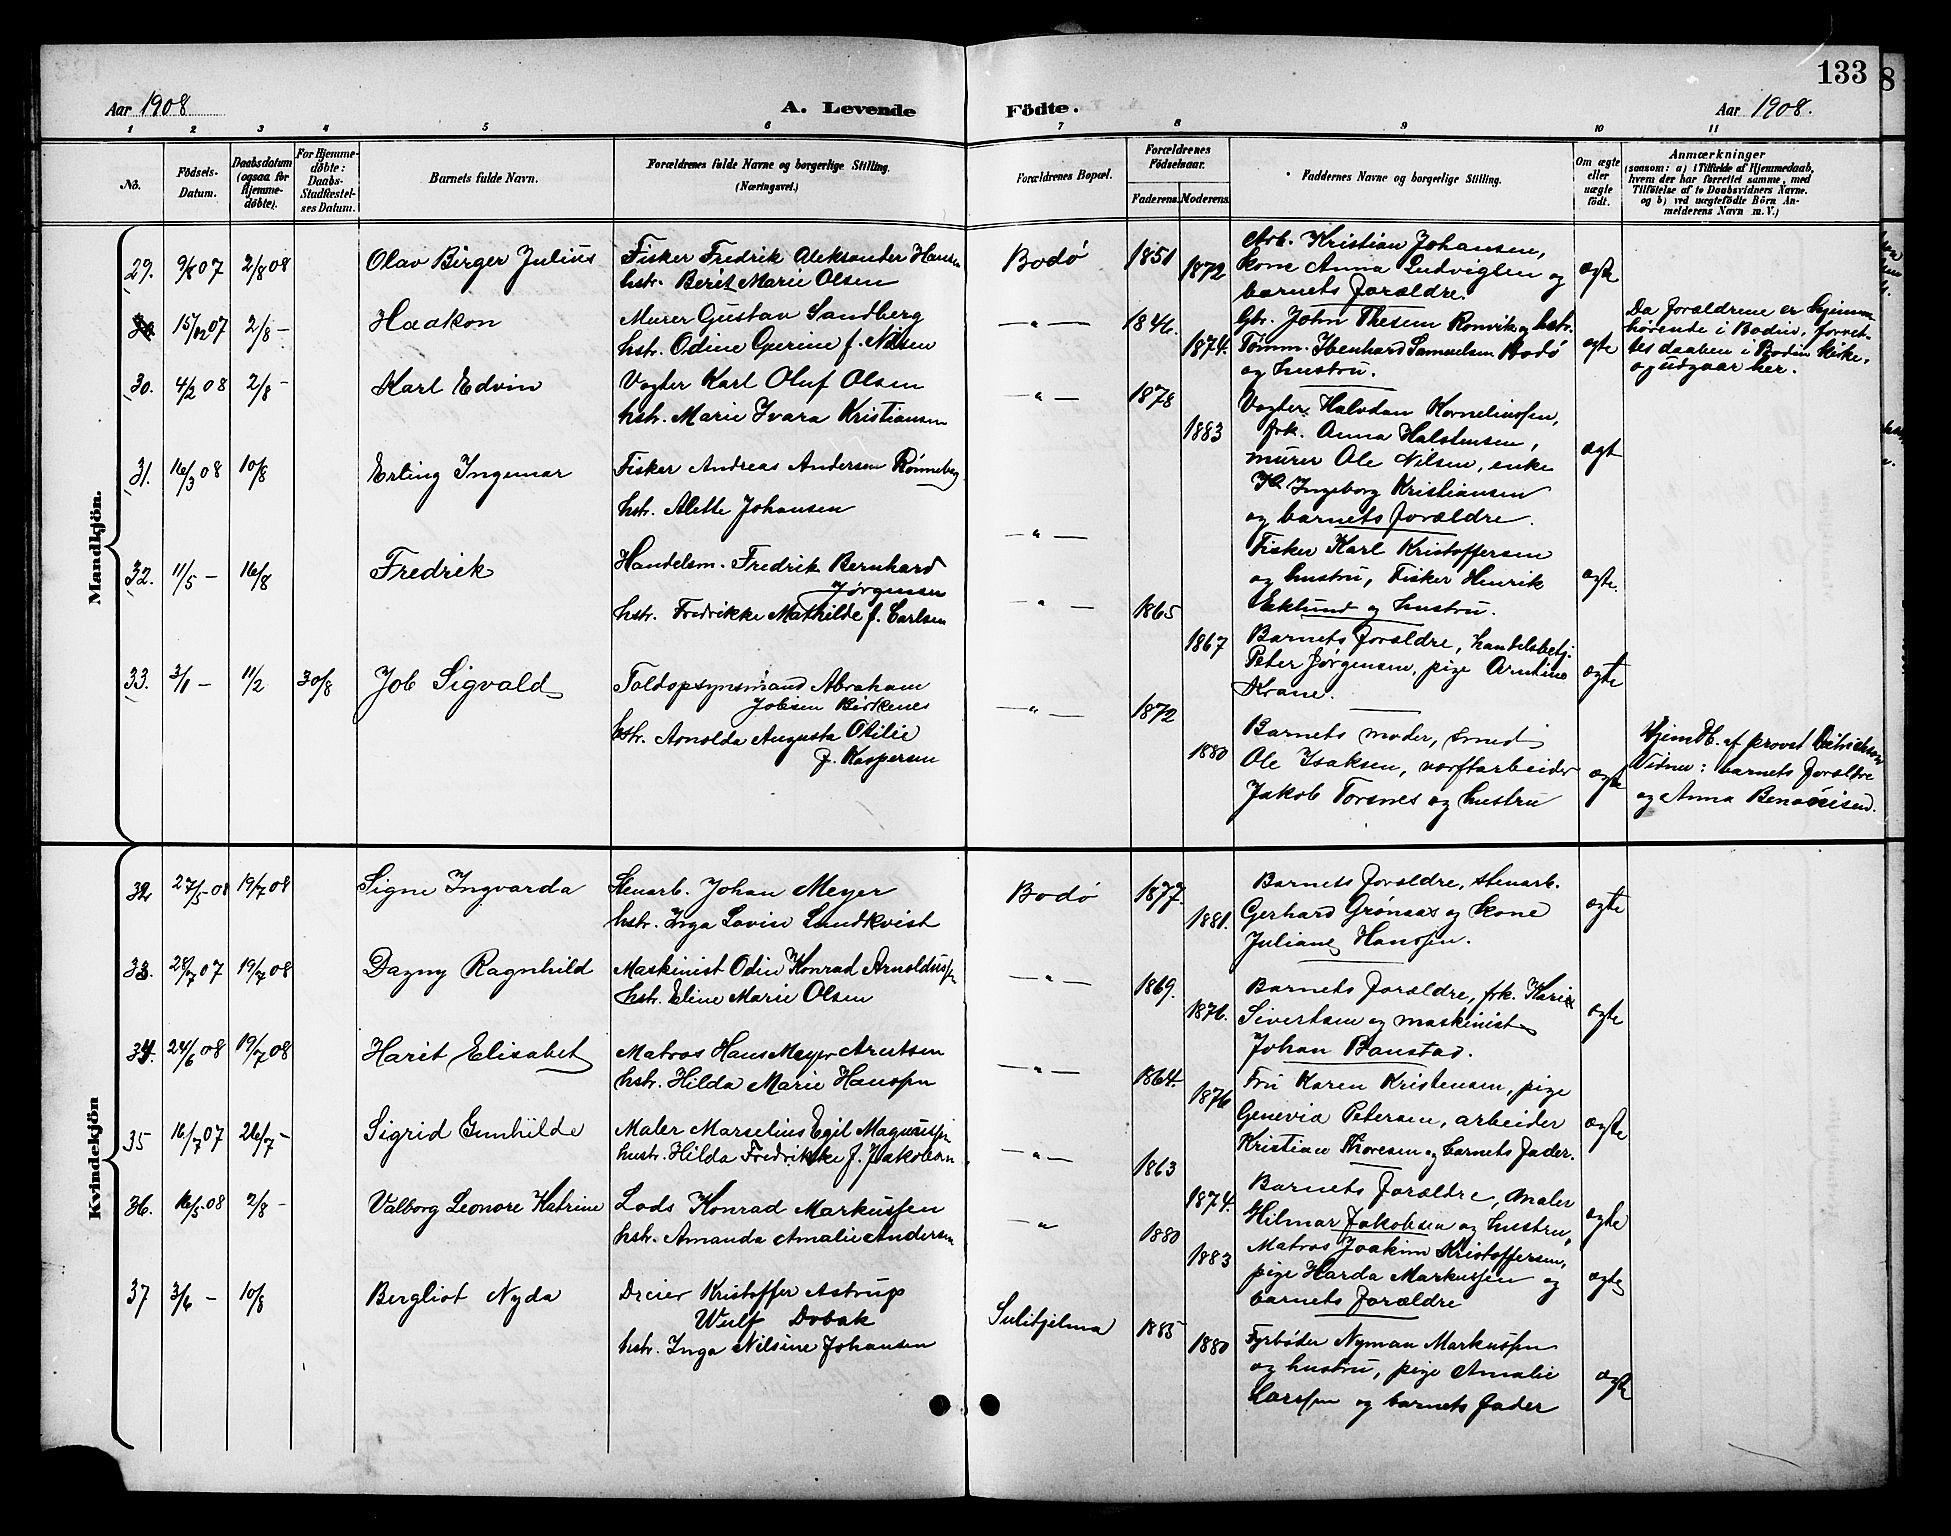 133
Aar 1908
A. Levende
Födte.
Aar 1908.
1 2 3 4 5 6 7 8 9 10 11
No.
Födsels-
Datum.
Daabsdatum
(ogsaa for
Hjemme-
döbte).
For Hjemme-
döbte:
Daabs-
Stadfæstel-
ses Datum.
Barnets fulde Navn.
Forældrenes fulde Navne og borgerlige Stilling.
(Næringsvei.)
Forældrenes Bopæl.
Forældrenes
Födselsaar.
Faderens.
Moderens.
Faddernes Navne og borgerlige Stilling.
Om ægte
eller
uægte
født.
Anmærkninger
(saasom: a) i Tilfælde af Hjemmedaab,
hvem der har forrettet samme, med
Tilföielse af to Daabsvidners Navne.
og b) ved uægtefödte Börn An-
melderens Navn m. V.)
Mandkjön.
29. 9/8 07 2/8 08
Olav Birger Julius
Fisker Fredrik Aleksander Hansen
hstr. Berit Marie Olsen
Bodø
1851
1872
Arb. Kristian Johansen,
kone Anna Ludvigsen og
barnets forældre.
ægte
15/12 07 2/8 –
Haakon
Murer Gustav Sandberg
hstr. Odine Gjerine f. Nilsen
— " —
1846.
1874.
Gbr. John Thesem Rønvik og hstr.
Tømm. Ibenhard Samuelsen Bodø
og hustru.
ægte
Da forældrene er hjemme-
hørende i Bodin, forret-
tes daaben i Bodin kirke,
og udgaar her.
30. 4/2 08 2/8 –
Karl Edvin
Vogter Karl Oluf Olsen
hstr. Marie Ivara Kristiansen
— " —
1878
1883
Vogter Halvdan Korneliussen,
frk. Anna Halstensen,
murer Ole Nilsen, enke
Ingeborg Kristiansen
og barnets forældre.
ægt
31. 16/3 08 10/8
Erling Ingemar
Fisker Andreas Andersen Rønneberg
hstr. Alette Johansen
— " —
Fisker Karl Kristoffersen
og hustru, Fisker Henrik
Eklund og hustru.
ægte.
32. 11/5 – 16/8
Fredrik
Handelsm. Fredrik Bernhard
Jørgensen
hstr. Fredrikke Mathilde f. Carlsen
— " —
1865
1867
Barnets forældre, handelsbetj.
Peter Jørgensen, pige Arntine
Krane.
ægte
33. 3/1 – 11/2 30/8
Job Sigvald
Toldopsynsmand Abraham
Jobsen Birkenes
hstr. Arnolda Augusta Otilie
f. Kaspersen
— " —
1872
1880
Barnets moder, smed
Ole Isaksen, værftarbeider
Jakob Torsnes og hustru
ægte
Hjemdb. af provst
Vidner: barnets forældre
og Anna Benonisen.
Kvindekjön
32 27/5 08 19/7 08
Signe Ingvarda
Stenarb. Johan Meyer
hstr. Inga Lovise Lundkvist
Bodø
1877.
1881.
Barnets forældre, stenarb.
Gerhard Grønaas og kone
Juliane Hanssen.
ægte
33. 28/7 07 19/7 08
Dagny Ragnhild
Maskinist Odin Konrad Arnoldussen
hstr. Eline Marie Olsen
— " —
1869.
1876.
Barnets forældre, frk. Karie
Sivertsen og maskinist
Johan Banstad.
ægte
34. 24/6 08 19/7 08
Harit Elisabet
Matros Hans Meyer Arentsen
hstr. Hilda Marie Hanssen
— " —
1864.
1876
Fru Karen Kristensen, pige
Genevia Petersen, arbeider
Kristian Thoresen og barnets fader.
ægte
35 16/7 07 26/7 –
Sigrid Gunhilde
Maler Marselius Egil Magnussen
hustr. Hilda Fredrikke f. Jakobsen
— " —
1863
1874.
Barnets forældre, maler
Hilmar Jakobsen og hustru,
ægte
36. 16/5 08 2/8 –
Valborg Leonore Katrine
Lods Konrad Markussen
hstr. Amanda Amalie Andersen
— "
1880
1883
Matros Joakim Kristoffersen,
pige Harda Markussen og
barnets forældre
ægte
37 3/6 – 10/8
Bergliot Nyda
Dreier Kristoffer Astrup
Wulf Dobak
hstr. Inga Nilsine Johansen
Sulitjelma
1885
1880
Fyrbøder Nyman Markussen
og hustru, pige Amalie
Larssen og barnets fader
ægte